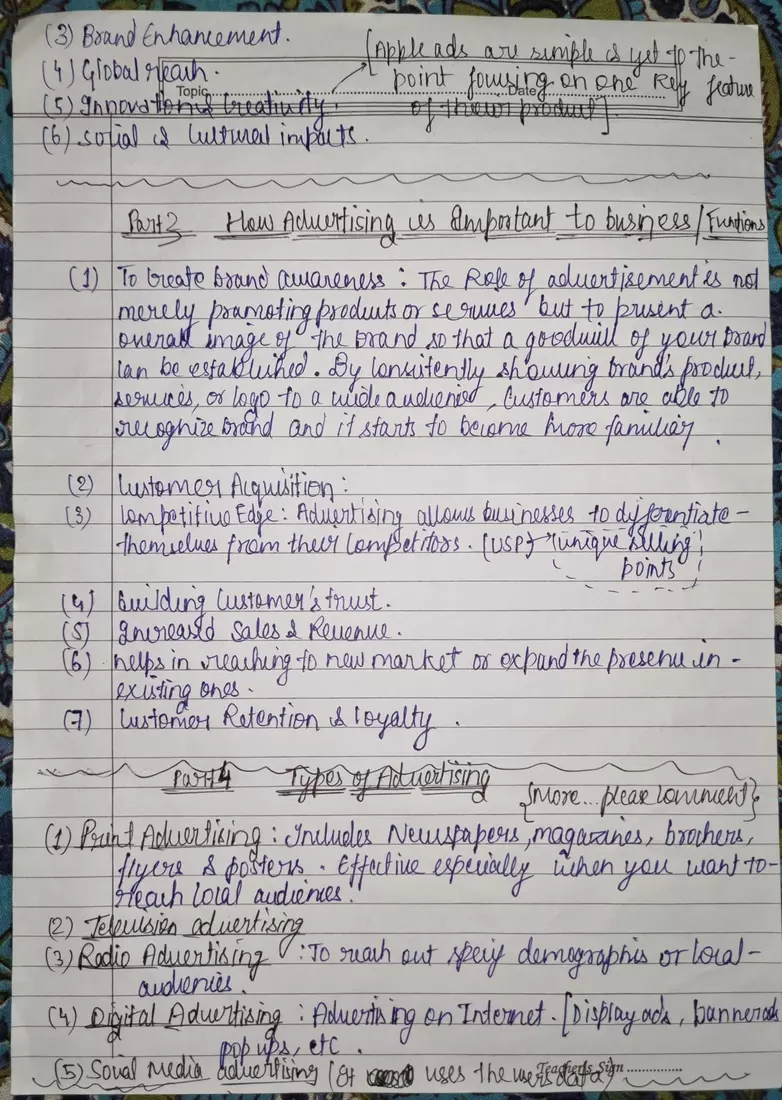 (3) Brand Enhancement.
(4) Global reach.
[Apple ads are simple & yet to the-
point focusing on one key feature
of their product].
Topic
Date
(5) Innovation & Creativity.
(6) social & Cultural impacts.
Part 3 How Advertising is Important to business / Funtions
(1) To Create brand awareness : The Role of advertisement is not
merely promoting products or services but to present a
overall image of the brand so that a goodwill of your brand
can be established. By Consistently showing brand's product,
services, or logo to a wide audience, Customers are able to
recognize brand and it starts to become more familiar.
(2) Customer Acquisition :
(3) Competitive Edge : Advertising allows businesses to differentiate-
themselves from their Competitors. (USP) → (unique selling
points
(4) Building Customer's trust.
(5) Increased Sales & Revenue.
(6) helps in reaching to new market or expand the presence in-
existing ones.
(7) Customer Retention & loyalty.
Part 4 Types of Advertising
{More... please Comment}
(1) Print Advertising : Includes Newspapers, magazines, brochers,
flyers & posters. Effective especially when you want to-
reach local audiences.
(2) Television advertising
(3) Radio Advertising : To reach out demographis or local-
audiences.
(4) Digital Advertising : Advertising on Internet. [Display ads, banner ads
pop ups, etc.
(5) Social Media advertising (It uses the users data)
Teacher's Sign